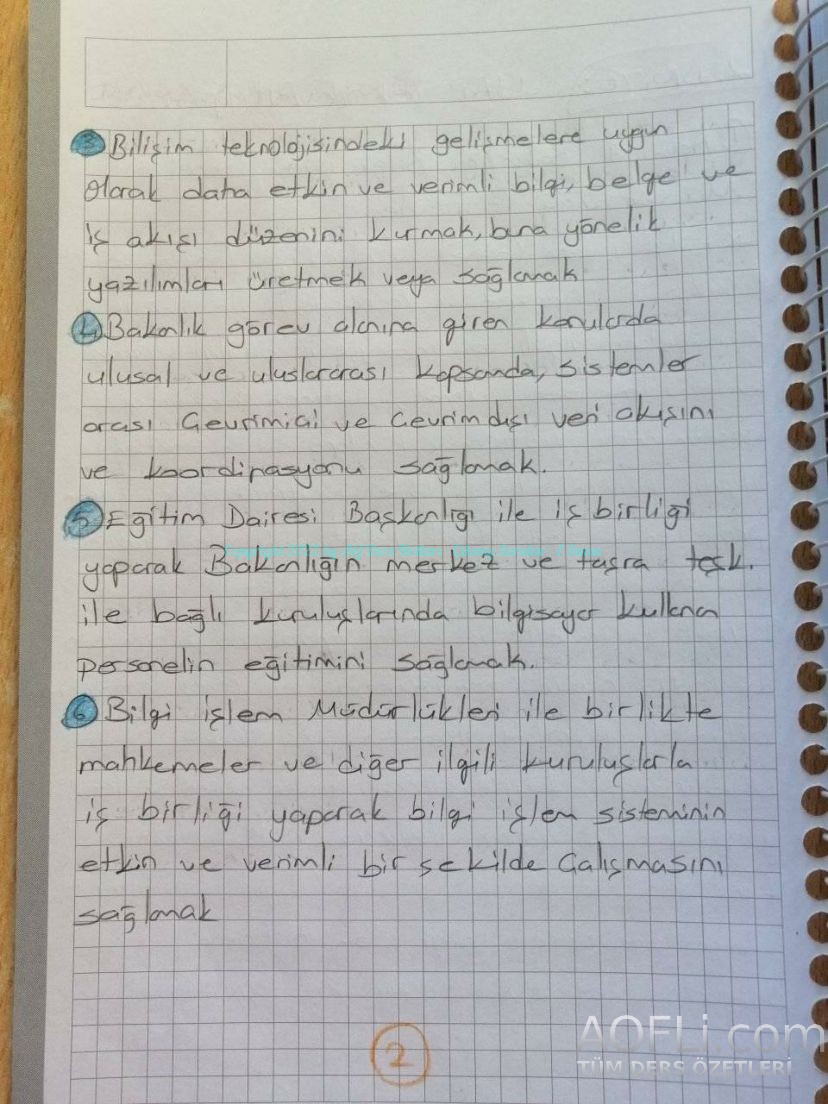 3 Bilişim teknolojisindeki gelişmelere uygun
olarak daha etkin ve verimli bilgi, belge ve
iş akışı düzenini kurmak, buna yönelik
yazılımları üretmek veya sağlamak
4 Bakanlık görev alanına giren konularda
ulusal ve uluslararası kapsamda, sistemler
arası Çevrimiçi ve Çevrimdışı veri akışını
ve koordinasyonu sağlamak.
5 Eğitim Dairesi Başkanlığı ile iş birliği
yaparak Bakanlığın merkez ve taşra teşk.
ile bağlı kuruluşlarında bilgisayar kullanan
personelin eğitimini sağlamak.
6 Bilgi işlem Müdürlükleri ile birlikte
mahkemeler ve diğer ilgili kuruluşlarla
iş birliği yaparak bilgi işlem sisteminin
etkin ve verimli bir şekilde Çalışmasını
sağlamak
2
AOFLi.com
TÜM DERS ÖZETLERİ